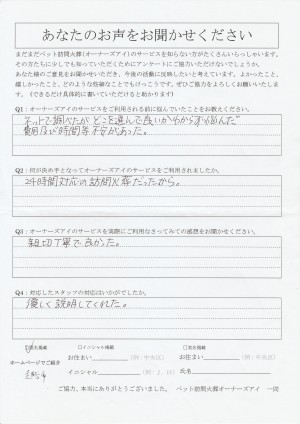 あなたのお声をお聞かせください
まだまだペット訪問火葬(オーナーズアイ)のサービスを知らない方がたくさんいらっしゃいます。
その方たちに少しでも知っていただくためにアンケートにご協力いただけないでしょうか。
あなた様のご意見をお聞かせいただき、今後の活動に反映したいと考えています。よかったこと、
嬉しかったこと、どのような些細なことでもけっこうです。ぜひご協力をよろしくお願いいたします。(できるだけ具体的に書いていただけると助かります)
Q1:オーナーズアイのサービスをご利用される前に悩んでいたことをお教えください。
ネットで調べたが どこを選んで良いかわからず悩んだ
費用及び時間等不安があった。
Q2:何が決め手となってオーナーズアイのサービスをご利用されましたか。
24時間対応の訪問火葬だったから。
Q3:オーナーズアイのサービスを実際にご利用なさってみての感想をお聞かせください。
親切丁寧で良かった。
Q4:対応したスタッフの対応はいかがでしたか。
優しく説明してくれた。
匿名掲載 □イニシャル掲載 □実名掲載
ホームページでご紹介 お住まい (例:中央区) お住まい (例:中央区)
イニシャル (例:J.H) 氏名
ご協力、本当にありがとうございました。 ペット訪問火葬オーナーズアイ 一同